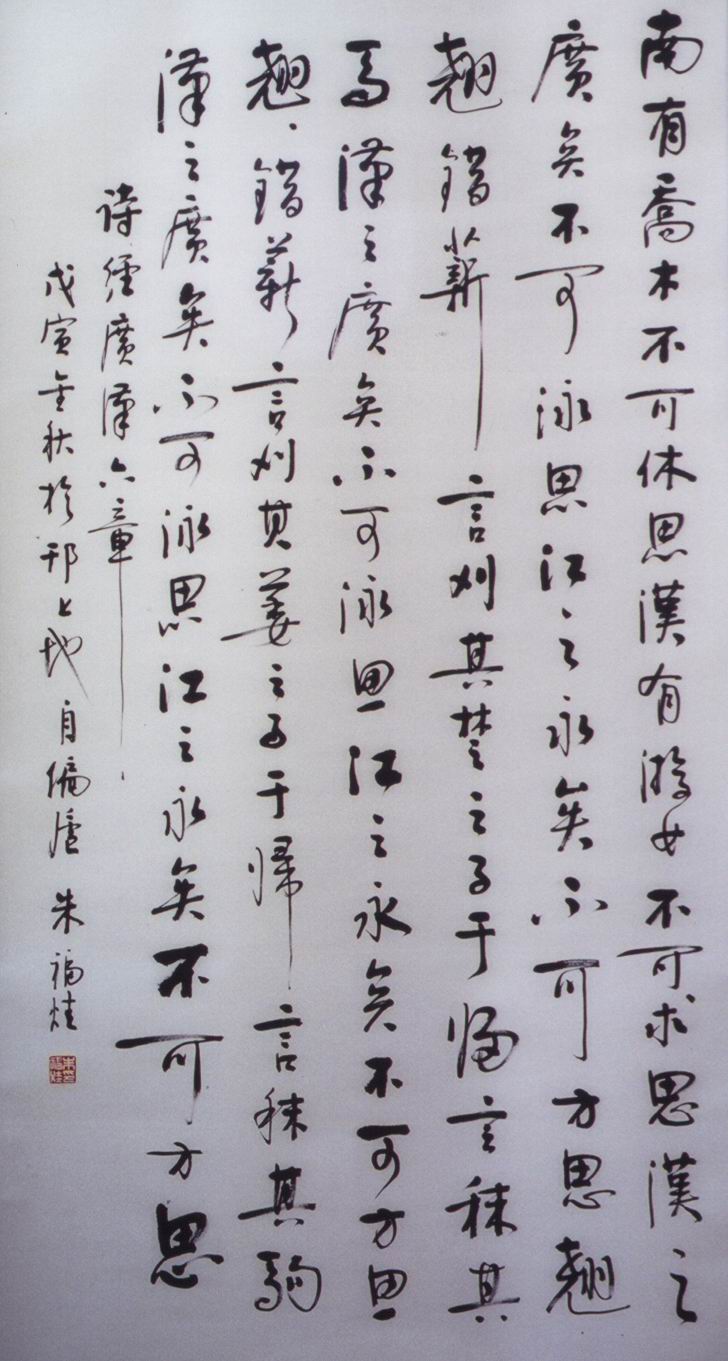 南有喬木不可休思漢有游女不可求思漢之
廣矣不可泳思江之永矣不可方思翹
翹錯薪言刈其楚之子于歸言秣其
馬漢之廣矣不可泳思江之永矣不可方思
翹翹錯薪言刈其蔞之子于帰言秣其駒
漢之廣矣不可泳思江之永矣不可方思
詩經廣漢六章
戊寅金秋於邗上地自偏廬朱福烓
朱福烓